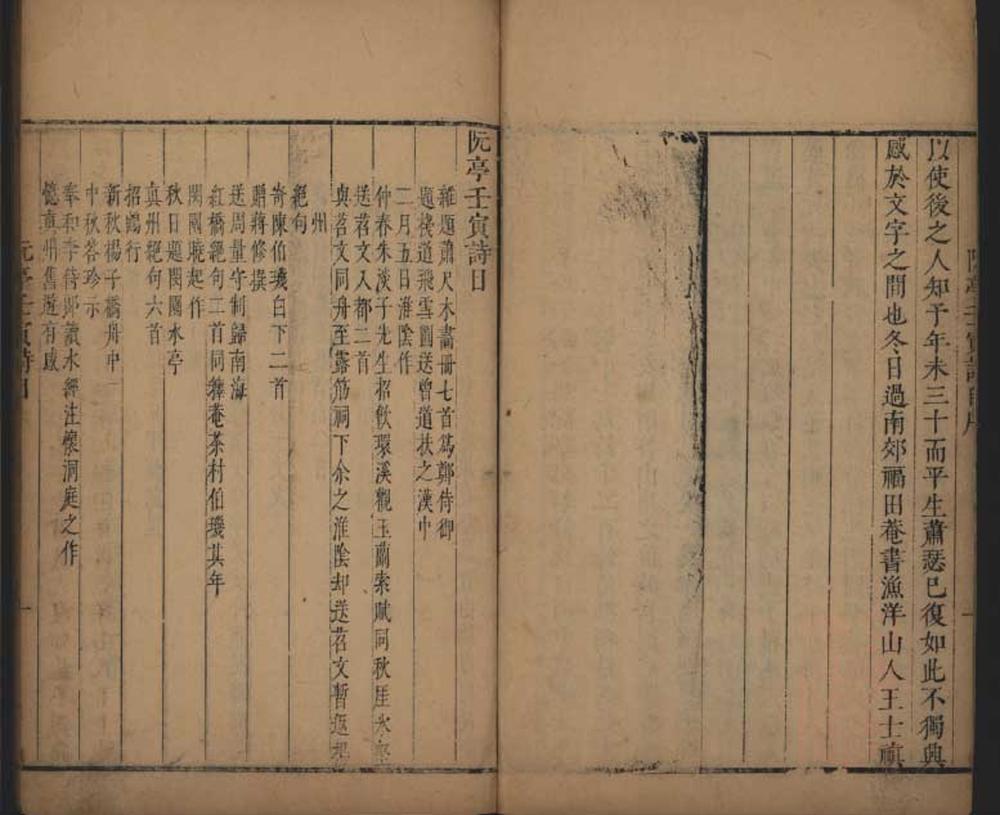 以使後之人知予年未三十而平生蕭瑟已復如此不獨興
感於文字之間也冬日過南郊福田菴書漁洋山人王士禛
阮亭壬寅詩自序
一
阮亭壬寅詩目
雜題蕭尺木畫冊七首爲鄭侍御
題棧道飛雪圖送曾道扶之漢中
二月五日淮陰作
仲春朱淡子先生招飲環溪觀玉蘭索賦同秋厓
送苕文入都二首
與苕文同舟至露筋祠下余之淮陰却送苕文暫返
州
絕句
寄陳伯璣白下二首
贈蔣修撰
送周量守制歸南海
紅橋絕句二首同籜菴茶村伯璣其年
閔園曉起作
秋日題閔園水亭
真州絕句六首
招鶴行
新秋楊子橋舟中
中秋答珍示
奉和李侍郎讀水經注懷洞庭之作
憶真州舊遊有感
阮亭壬寅詩目
一